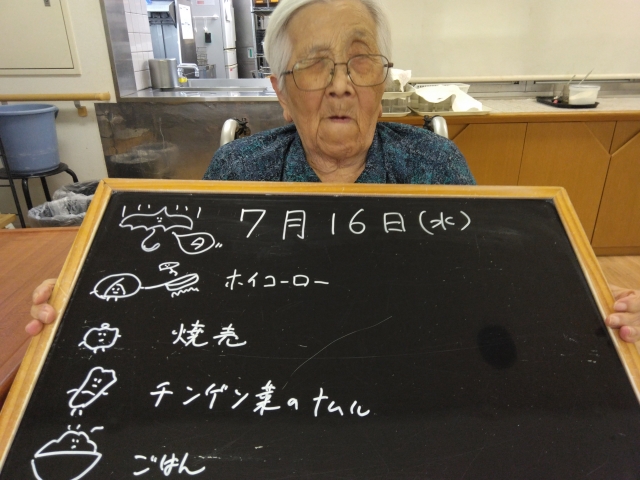 7月16日(水)
ホイコーロー
焼売
チンゲン菜のナムル
ごはん